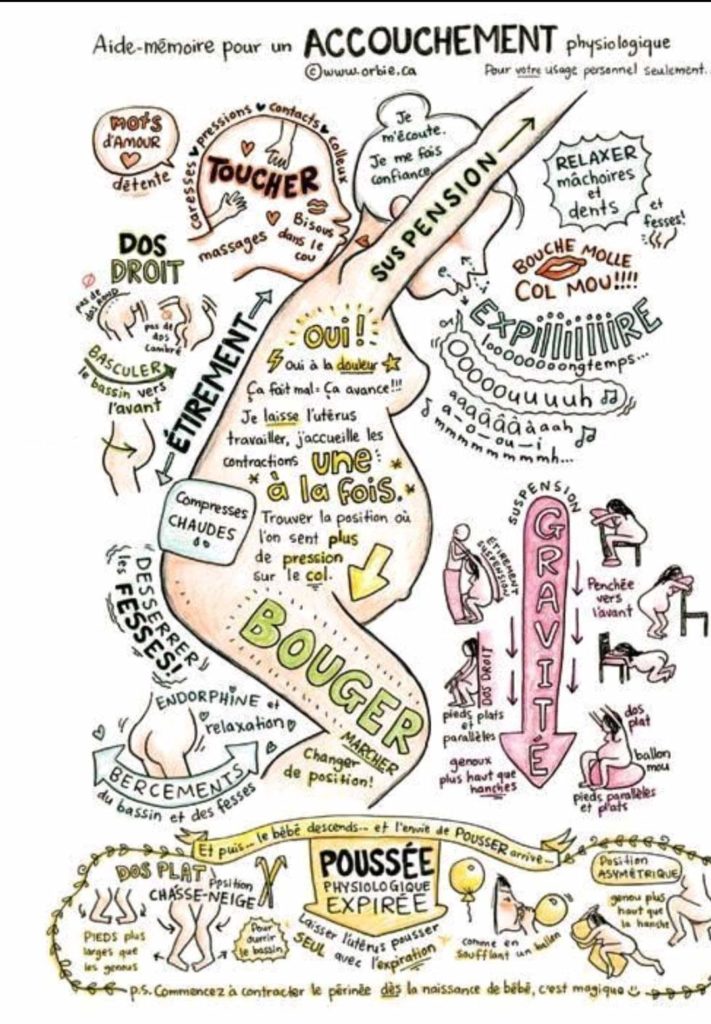 Aide-mémoire pour un ACCOUCHEMENT physiologique
©www.orbie.ca
Pour votre usage personnel seulement.
MOTS
D'AMOUR
détente
caresses ♥ pressions ♥ contacts ♥ colleux
TOUCHER
massages
Bisous
dans le
cou
Je
m'écoute.
Je me fais
confiance.
SUSPENSION
RELAXER
mâchoires
et
dents
et
fesses!
BOUCHE MOLLE
COL MOU!!!!
EXPIIIIIIIIIRE
looooooooongtemps...
OOOOOuuuuuh
aaaaâââàaah
a-o-ou-i
mmmmmmmmmmh...
DOS
DROIT
pas de
dos rond
pas de
dos
cambré
BASCULER
le bassin vers
l'avant
ÉTIREMENT
OUI!
Oui à la douleur
Ça fait mal = Ça avance!!!
Je laisse l'utérus
travailler, j'accueille les
contractions une
à la fois.
Trouver la position où
l'on sent plus
de pression
sur le col.
Compresses
CHAUDES
DESSERRER
les FESSES!
BOUGER
MARCHER
Changer
de position!
ENDORPHINE et
relaxation
BERCEMENTS
du bassin et des fesses
SUSPENSION
GRAVITÉ
ETIREMENT
SUSPENSION
DOS DROIT
pieds plats
et
parallèles
genoux
plus haut que
hanches
Penchée
vers
l'avant
dos
plat
ballon
mou
pieds parallèles
et plats
Et puis... le bébé descends... et l'envie de POUSSER arrive...
DOS PLAT
Position
CHASSE-NEIGE
PIEDS plus
larges que
les genous
Pour
ouvrir
le bassin
POUSSÉE
PHYSIOLOGIQUE
EXPIRÉE
Laisser l'utérus pousser
SEUL avec l'expiration
comme en
soufflant un ballon
Position
ASYMÉTRIQUE
genou plus
haut que
la hanche
p.s. Commencez à contracter le périnée dès la naissance de bébé, c'est magique